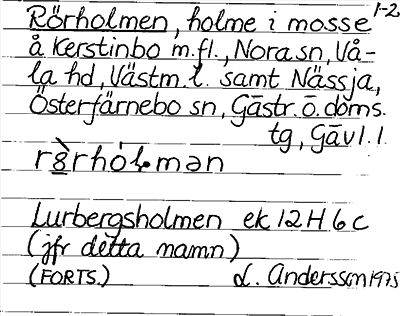 Rörholmen, holme i mosse 1-2
å Kerstinbo m.fl., Nora sn, Vå-
la hd, Västm. l. samt Nässja,
Österfärnebo sn, Gästr. ö. doms.
tg, Gävl. l.
Lurbergsholmen ek 12 H 6 c
(jfr detta namn)
(FORTS.) L. Andersson 1975